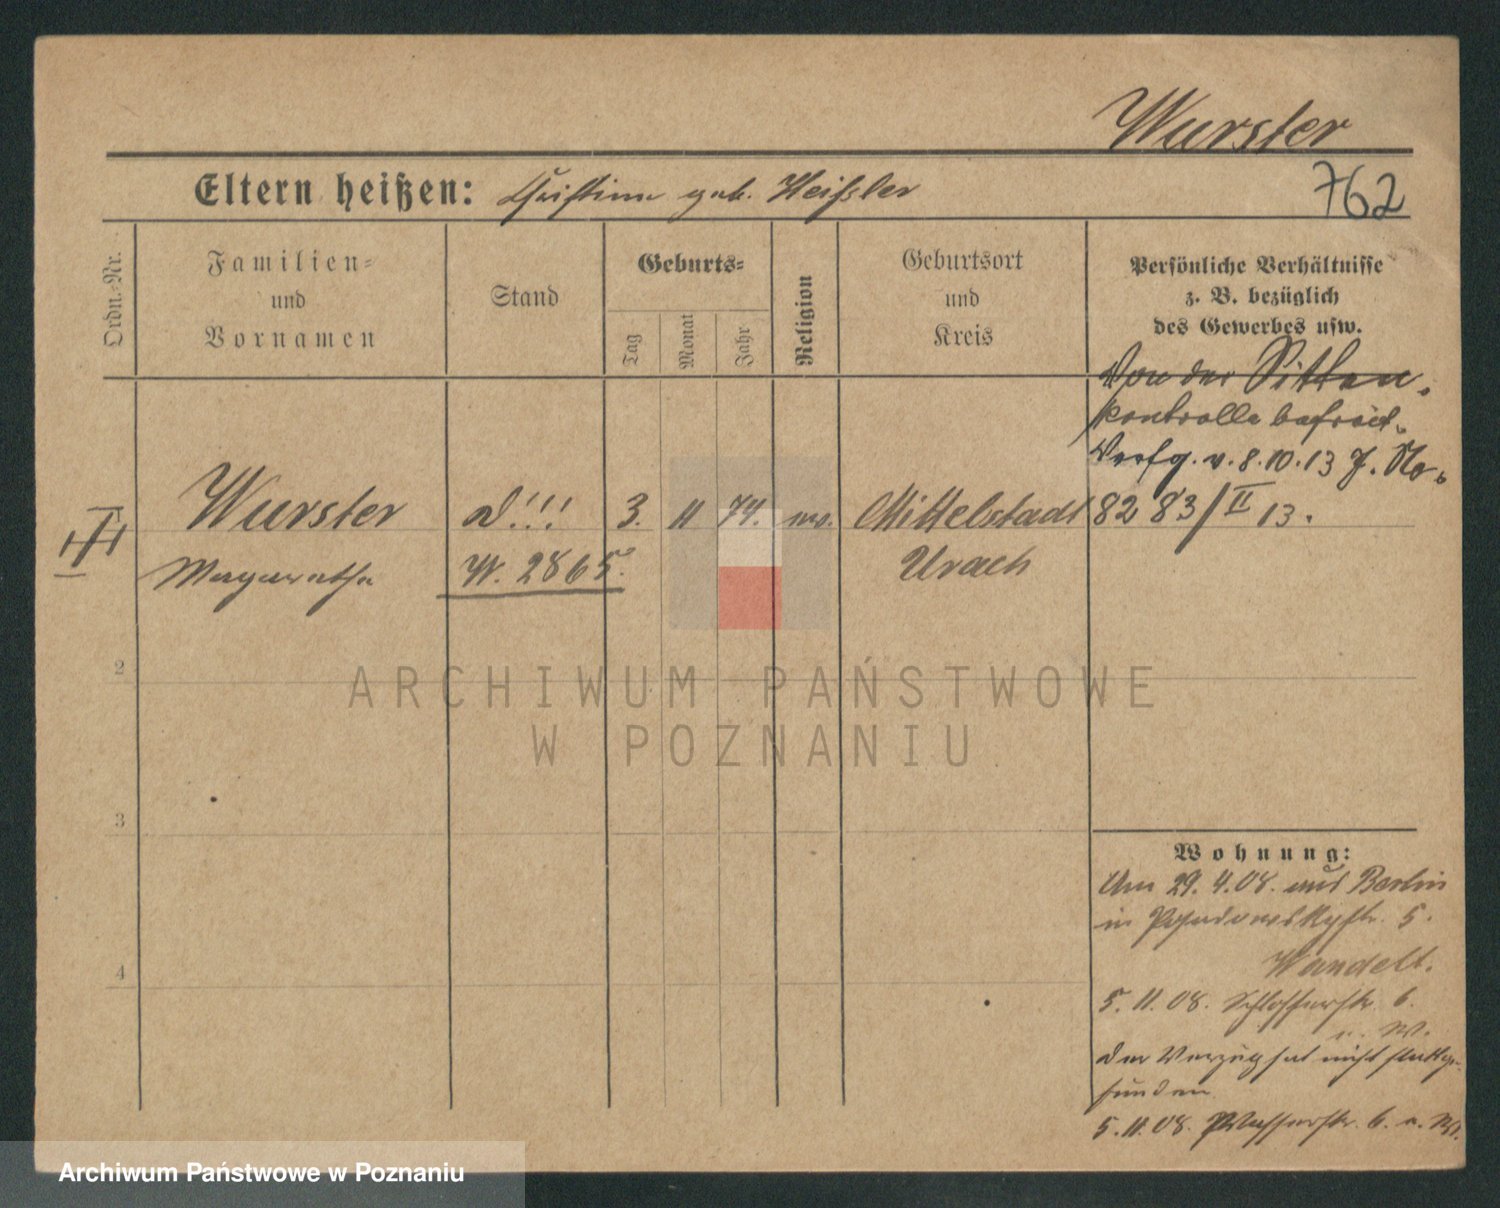 Wurster
Eltern heißen: Christine geb. Heißler
762
Ordn.-Nr.
Familien-
und
Vornamen
Stand
Geburts-
Tag
Monat
Jahr
Religion
Geburtsort
und
Kreis
Persönliche Verhältnisse
z. B. bezüglich
des Gewerbes usw.
Von der Sitten-
kontrolle befreit.
Verfg. v. 8.10.13 J. No.
82 83/II 13.
Wurster
d!!!
3. 11 74. ev.
Mittelstadt
Margaretha
W. 2865.
Urach
2
3
4
Wohnung:
Am 29. 4.08. aus Berlin
in Posadowskystr. 5.
Wandelt.
5. 11. 08. Schlosserstr. 6.
b. W.
Der Verzug hat nicht stattge-
funden
5.11.08. Wasserstr. 6.
ARCHIWUM PAŃSTWOWE
W POZNANIU
Archiwum Państwowe w Poznaniu